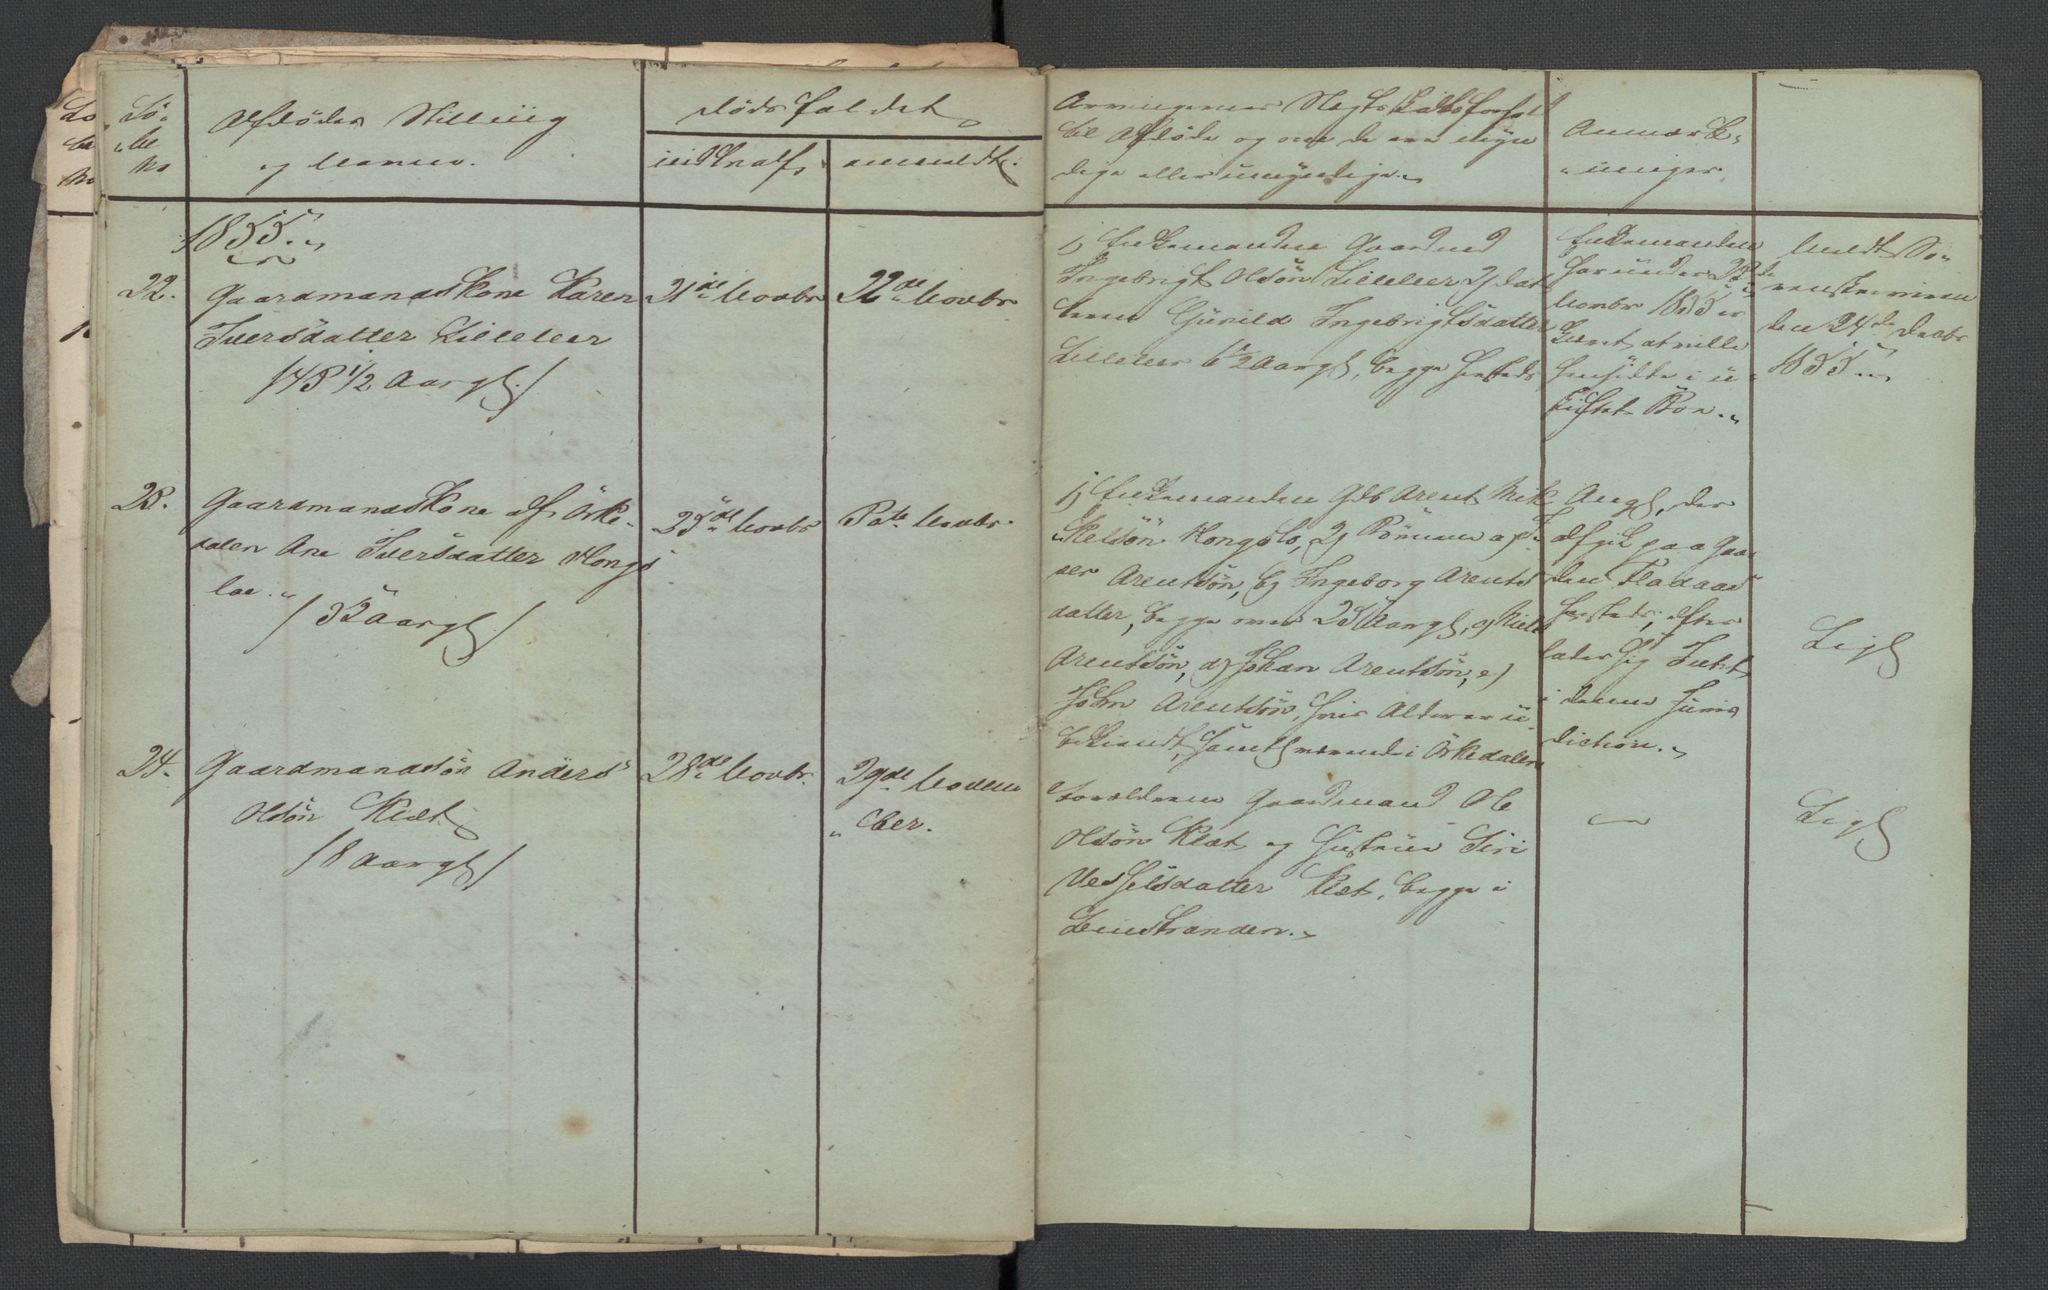 Lö-
be
No
Afdödes Stilling
og Navn.
Dödsfaldet
indtraf
anmeldt.
Arvingernes Slægtskabsforhol
til Afdöde og om de ere myn
dige eller umyndige.
Anmærk-
ninger
1855.
22.
Gaardmandskone Karen
Iversdatter Lilleleer
/48 1/2 Aargl./
21de Novbr
22de Novbr
1) Enkemanden Gaardmd
Ingebrigt Olsön Lilleleer 2) Dat
teren Gunild Ingebrigtsdatter
Lilleleer 6 1/2 Aargl, begge hersteds
Enkemanden
har under 22de
Novbr 1855 er
klæret at ville
hensidde i u
skiftet Bo.
Meldt So-
renskriveren
den 24de Decbr
1855.
23.
Gaardmandskone af Örke-
dalen Ane Iversdatter Hongs
loe.
/ 52 Aargl. /
25de Novbr
Novbr.
1) Enkemanden Gdb Arent Mik
kelsön Hongslo, 2) Börnene a)
Arentsön, b) Ingeborg Arents
datter, begge over 25 Aargl, c)
Arentsön, d) Johan Arentsön, e)
John Arentsön, hvis Alder er u
bekiendt, samtl værende i Örkedalen
Angl, der
afgik paa Gaar
den Fladaas
hersteds, efter
lader sig Intet
i denne Juris
diction.
Ligl
24.
Gaardmandssön Anders
Olsön Klæt
/8 Aargl/
28de Novbr.
29de Novem
ber.
Forældrene Gaardmand Ole
Olsön Klæt og Hustrue Siri
Vesselsdatter Klæt, begge i
Leinstranden.
Ligl